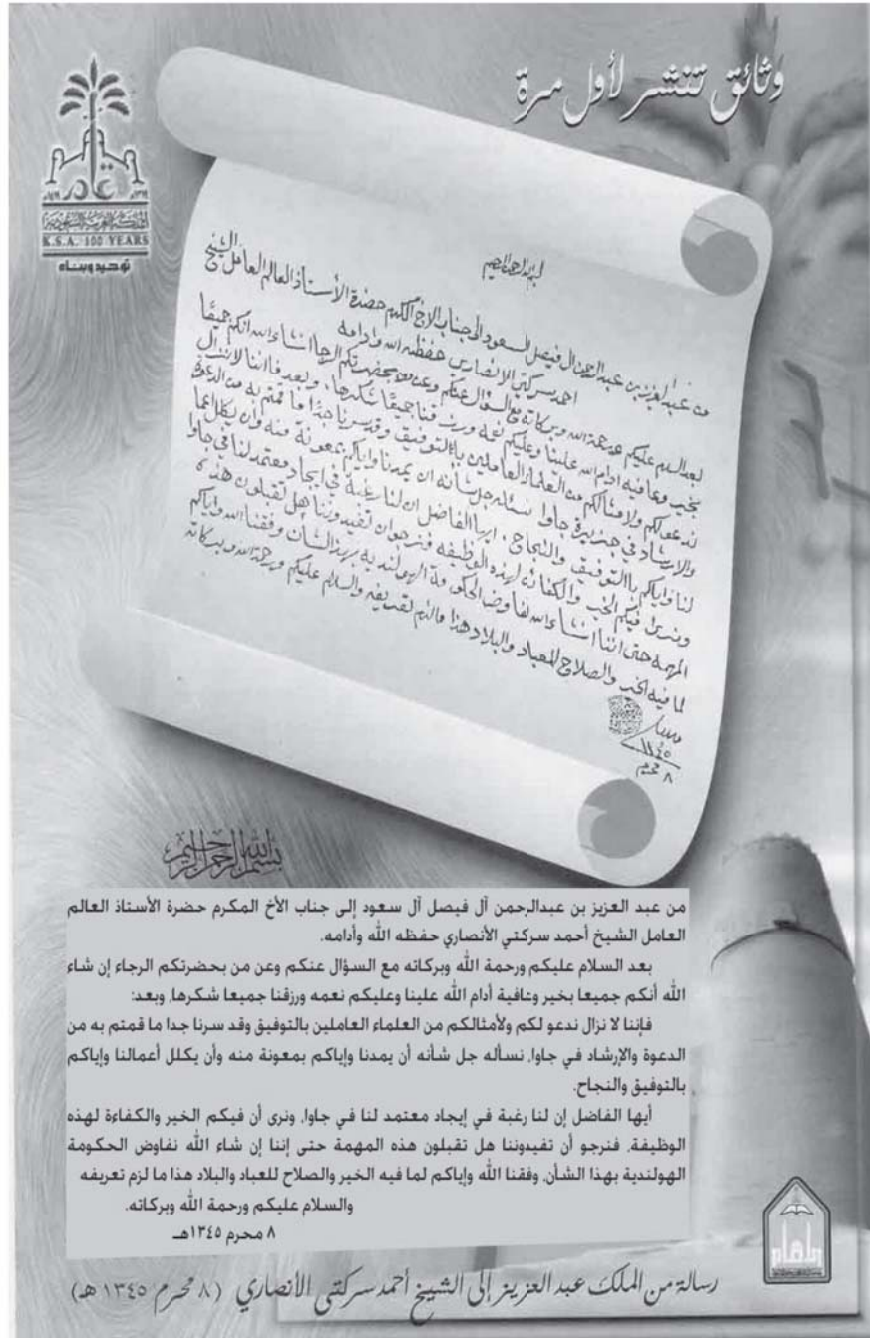 وثائق تنشر لأول مرة
K.S.A. 100 YEARS
توحيد وبناء
بسم الله الرحمن الرحيم
من عبد العزيز بن عبد الرحمن ال فيصل السعود الى جناب الاخ المكرم حضرة الأستاذ العالم العامل الشيخ
احمد سركتي الانصاري حفظه الله وادامه
بعد السلام عليكم ورحمة الله وبركاته مع السؤال عنكم وعن من بحضرتكم الرجا انشاء الله انكم جميعًا
بخير وعافيه ادام الله علينا وعليكم نعمه ورزقنا جميعًا شكرها، وبعد فاننا لانزال
ندعو لكم ولامثالكم من العلماء العاملين باالتوفيق وقد سرنا جدًا ما قمتم به من الدعوة
والارشاد في جزيرة جاوا نسئله جل شأنه ان يمدنا واياكم بمعونة منه وان يكلل اعما
لنا واياكم باالتوفيق والنجاح، ايها الفاضل ان لنا رغبة في ايجاد معتمد لنا في جاوا
ونرى فيكم الخير والكفائة لهذه الوظيفه فنرجو ان تفيدوننا هل تقبلون هذه
المهمة حتى اننا انشاء الله نفاوض الحكومة الهولنديه بهذا الشأن وفقنا الله واياكم
لما فيه الخير والصلاح للعباد والبلاد هذا مالزم تعريفه والسلام عليكم ورحمة الله وبركاته
١٣٤٥
٨ محرم
بسم الله الرحمن الرحيم
من عبد العزيز بن عبدالرحمن آل فيصل آل سعود إلى جناب الأخ المكرم حضرة الأستاذ العالم
العامل الشيخ أحمد سركتي الأنصاري حفظه الله وأدامه.
بعد السلام عليكم ورحمة الله وبركاته مع السؤال عنكم وعن من بحضرتكم الرجاء إن شاء
الله أنكم جميعا بخير وعافية أدام الله علينا وعليكم نعمه ورزقنا جميعا شكرها, وبعد:
فإننا لا نزال ندعو لكم ولأمثالكم من العلماء العاملين بالتوفيق وقد سرنا جدا ما قمتم به من
الدعوة والإرشاد في جاوا, نسأله جل شأنه أن يمدنا وإياكم بمعونة منه وأن يكلل أعمالنا وإياكم
بالتوفيق والنجاح.
أيها الفاضل إن لنا رغبة في إيجاد معتمد لنا في جاوا, ونرى أن فيكم الخير والكفاءة لهذه
الوظيفة, فنرجو أن تفيدوننا هل تقبلون هذه المهمة حتى إننا إن شاء الله نفاوض الحكومة
الهولندية بهذا الشأن, وفقنا الله وإياكم لما فيه الخير والصلاح للعباد والبلاد هذا ما لزم تعريفه
والسلام عليكم ورحمة الله وبركاته.
٨ محرم ١٣٤٥هـ
رسالة من الملك عبد العزيز إلى الشيخ أحمد سركتي الأنصاري (٨ محرم ١٣٤٥ هـ)